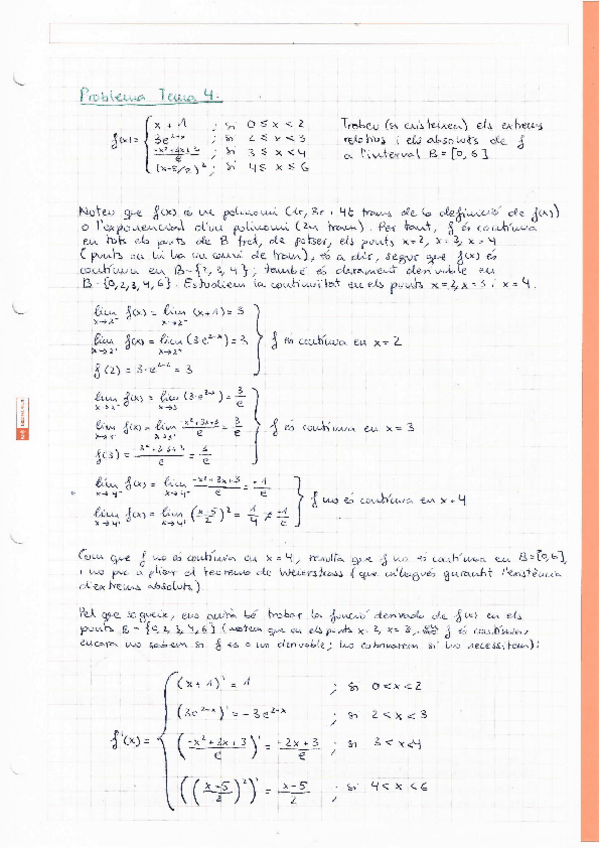 Problema Tema 4.
f(x) = { x + 1 ; si 0 ≤ x < 2
3e^(2-x) ; si 2 ≤ x < 3
(-x²+3x+3)/e ; si 3 ≤ x < 4
(x-5/2)² ; si 4 ≤ x ≤ 6
Trobeu (si existeixen) els extrems
relatius i els absoluts de f
a l'interval B = [0, 6]
Noteu que f(x) és un polinomi (1r, 3r i 4t trams de la definició de f(x))
o l'exponencial d'un polinomi (2n tram). Per tant, f és contínua
en tots els punts de B tret, de potser, els punts x=2, x=3, x=4
(punts on hi ha un canvi de tram), és a dir, segur que f(x) és
contínua en B-{2, 3, 4}; també és clarament derivable en
B-{0,2,3,4,6}. Estudiem la continuïtat en els punts x=2, x=3 i x=4.
lim x→2⁻ f(x) = lim x→2⁻ (x+1) = 3
lim x→2⁺ f(x) = lim x→2⁺ (3e^(2-x)) = 3 } f és contínua en x=2
f(2) = 3·e^(2-2) = 3
lim f(x) = lim x→3 (3·e^(2-x)) = 3/e
lim f(x) = lim x²+3x+3/e = 3/e } f és contínua en x=3
f(3) = 3²+3·3+3/e = 3/e
lim x→4⁻ f(x) = lim x→4⁻ -x²+3x+3/e = -1/e
lim x→4⁺ f(x) = lim x→4⁺ (x-5/2)² = 1/4 ≠ -1/e } f no és contínua en x=4
Com que f no és contínua en x=4, resulta que f no és contínua en B=[0,6],
i no puc aplicar el teorema de Weierstrass (que m'hagués garantit l'existència
d'extrems absoluts).
Pel que segueix, ens anirà bé trobar la funció derivada de f(x) en els
punts B-{0,2,3,4,6} (notem que en els punts x=2, x=3, f és contínua,
encara no sabem si f és o no derivable; ho estudiarem si ho necessitem):
f'(x) = { (x+1)' = 1 ; si 0<x<2
(3e^(2-x))' = -3e^(2-x) ; si 2<x<3
((-x²+3x+3)/e)' = (-2x+3)/e ; si 3<x<4
(((x-5)/2)²)' = (x-5)/2 ; si 4<x<6